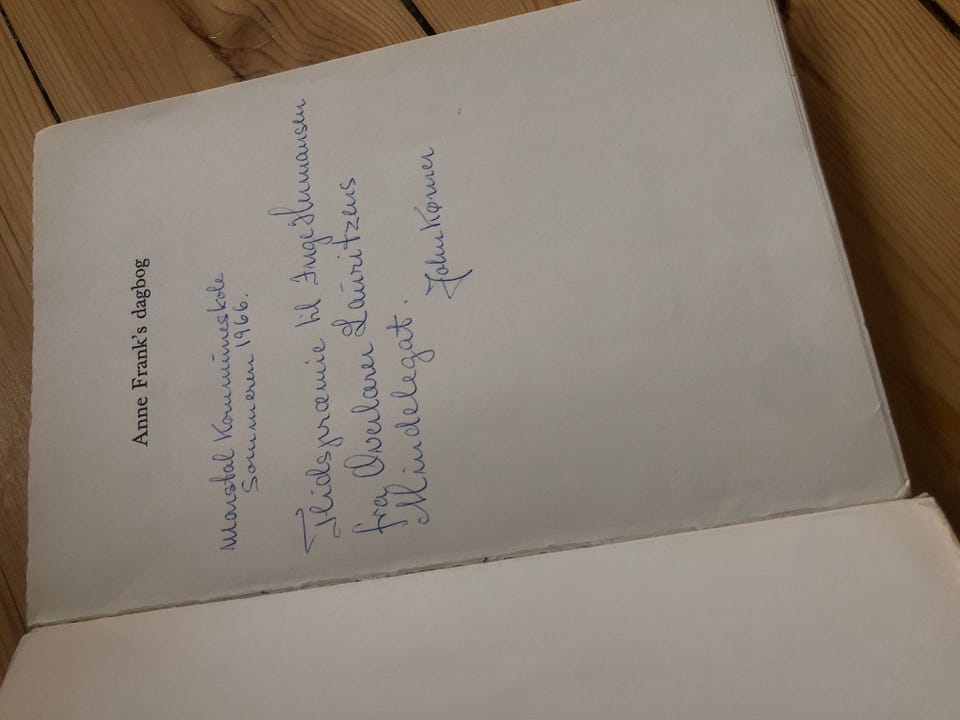 Anne Frank's dagbog
Marstal Kommuneskole
Sommeren 1966.
Flidspræmie til Inge Hermansen
fra Overlærer Lauritzens
Mindelegat.
John Kømer